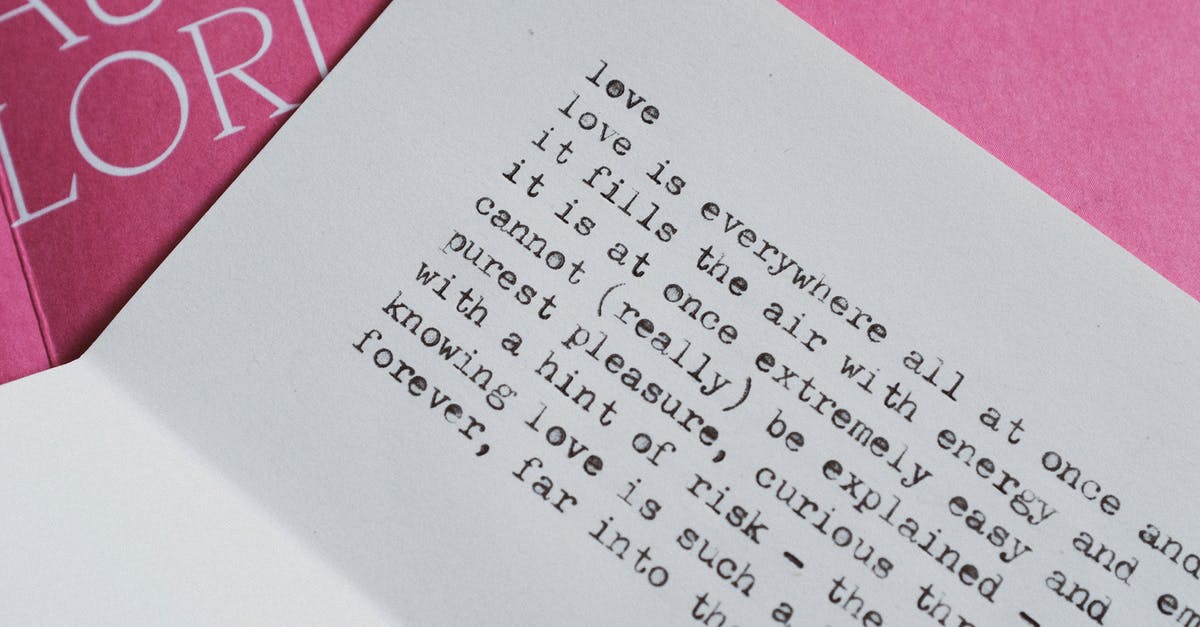 LOR
love
love is everywhere all at once and
it fills the air with energy and em
it is at once extremely easy and
cannot (really) be explained –
purest pleasure, curious thr
with a hint of risk – the
knowing love is such a
forever, far into th